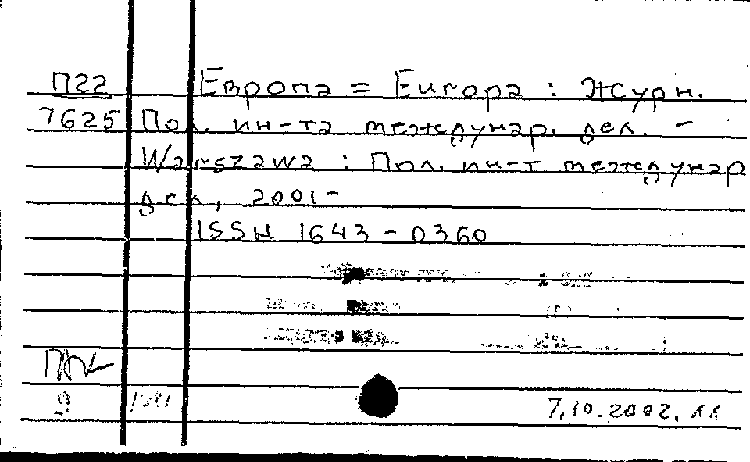 П22 Европа = Europa : Журн.
7625 Пол. ин-та междунар. дел. -
Warszawa : Пол. ин-т междунар
дел, 2001-
ISSN 1643-0360
9
7.10.2002.